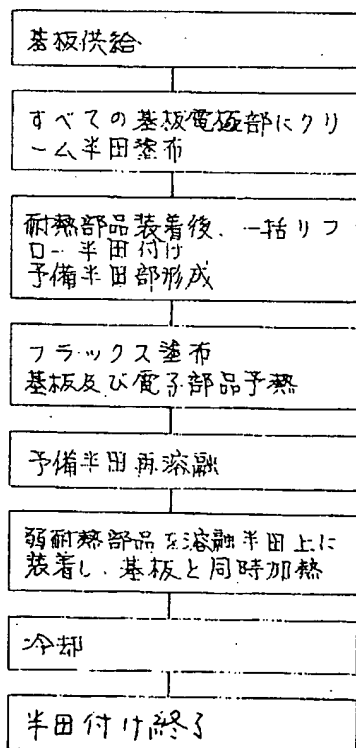 基板供給
すべての基板電極部にクリ
ーム半田塗布
耐熱部品装着後、一括リフ
ロー半田付け
予備半田部形成
フラックス塗布
基板及び電子部品予熱
予備半田再溶融
弱耐熱部品を溶融半田上に
装着し、基板と同時加熱
冷却
半田付け終了